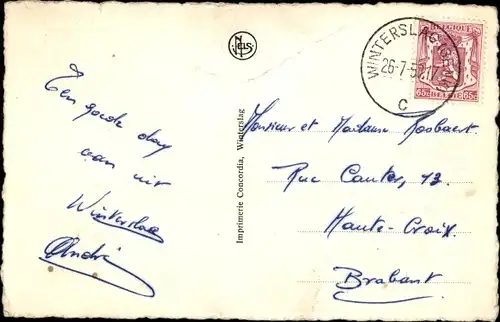 Een goede dag
van uit
Winterslag
André
Imprimerie Concordia, Winterslag
Nels
WINTERSLAG
26-7-5
C
BELGIQUE
65c 65c
BELGIE
Monsieur et Madame
Rue Cantes, 13
Haute-Croix.
Brabant.